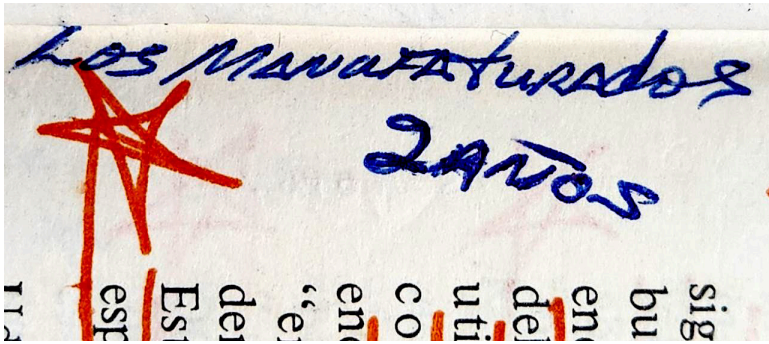 LOS MANUFATURADOS
2 AÑOS
sig
bu
enc
del
uti
co
enc
“er
der
Est
esp